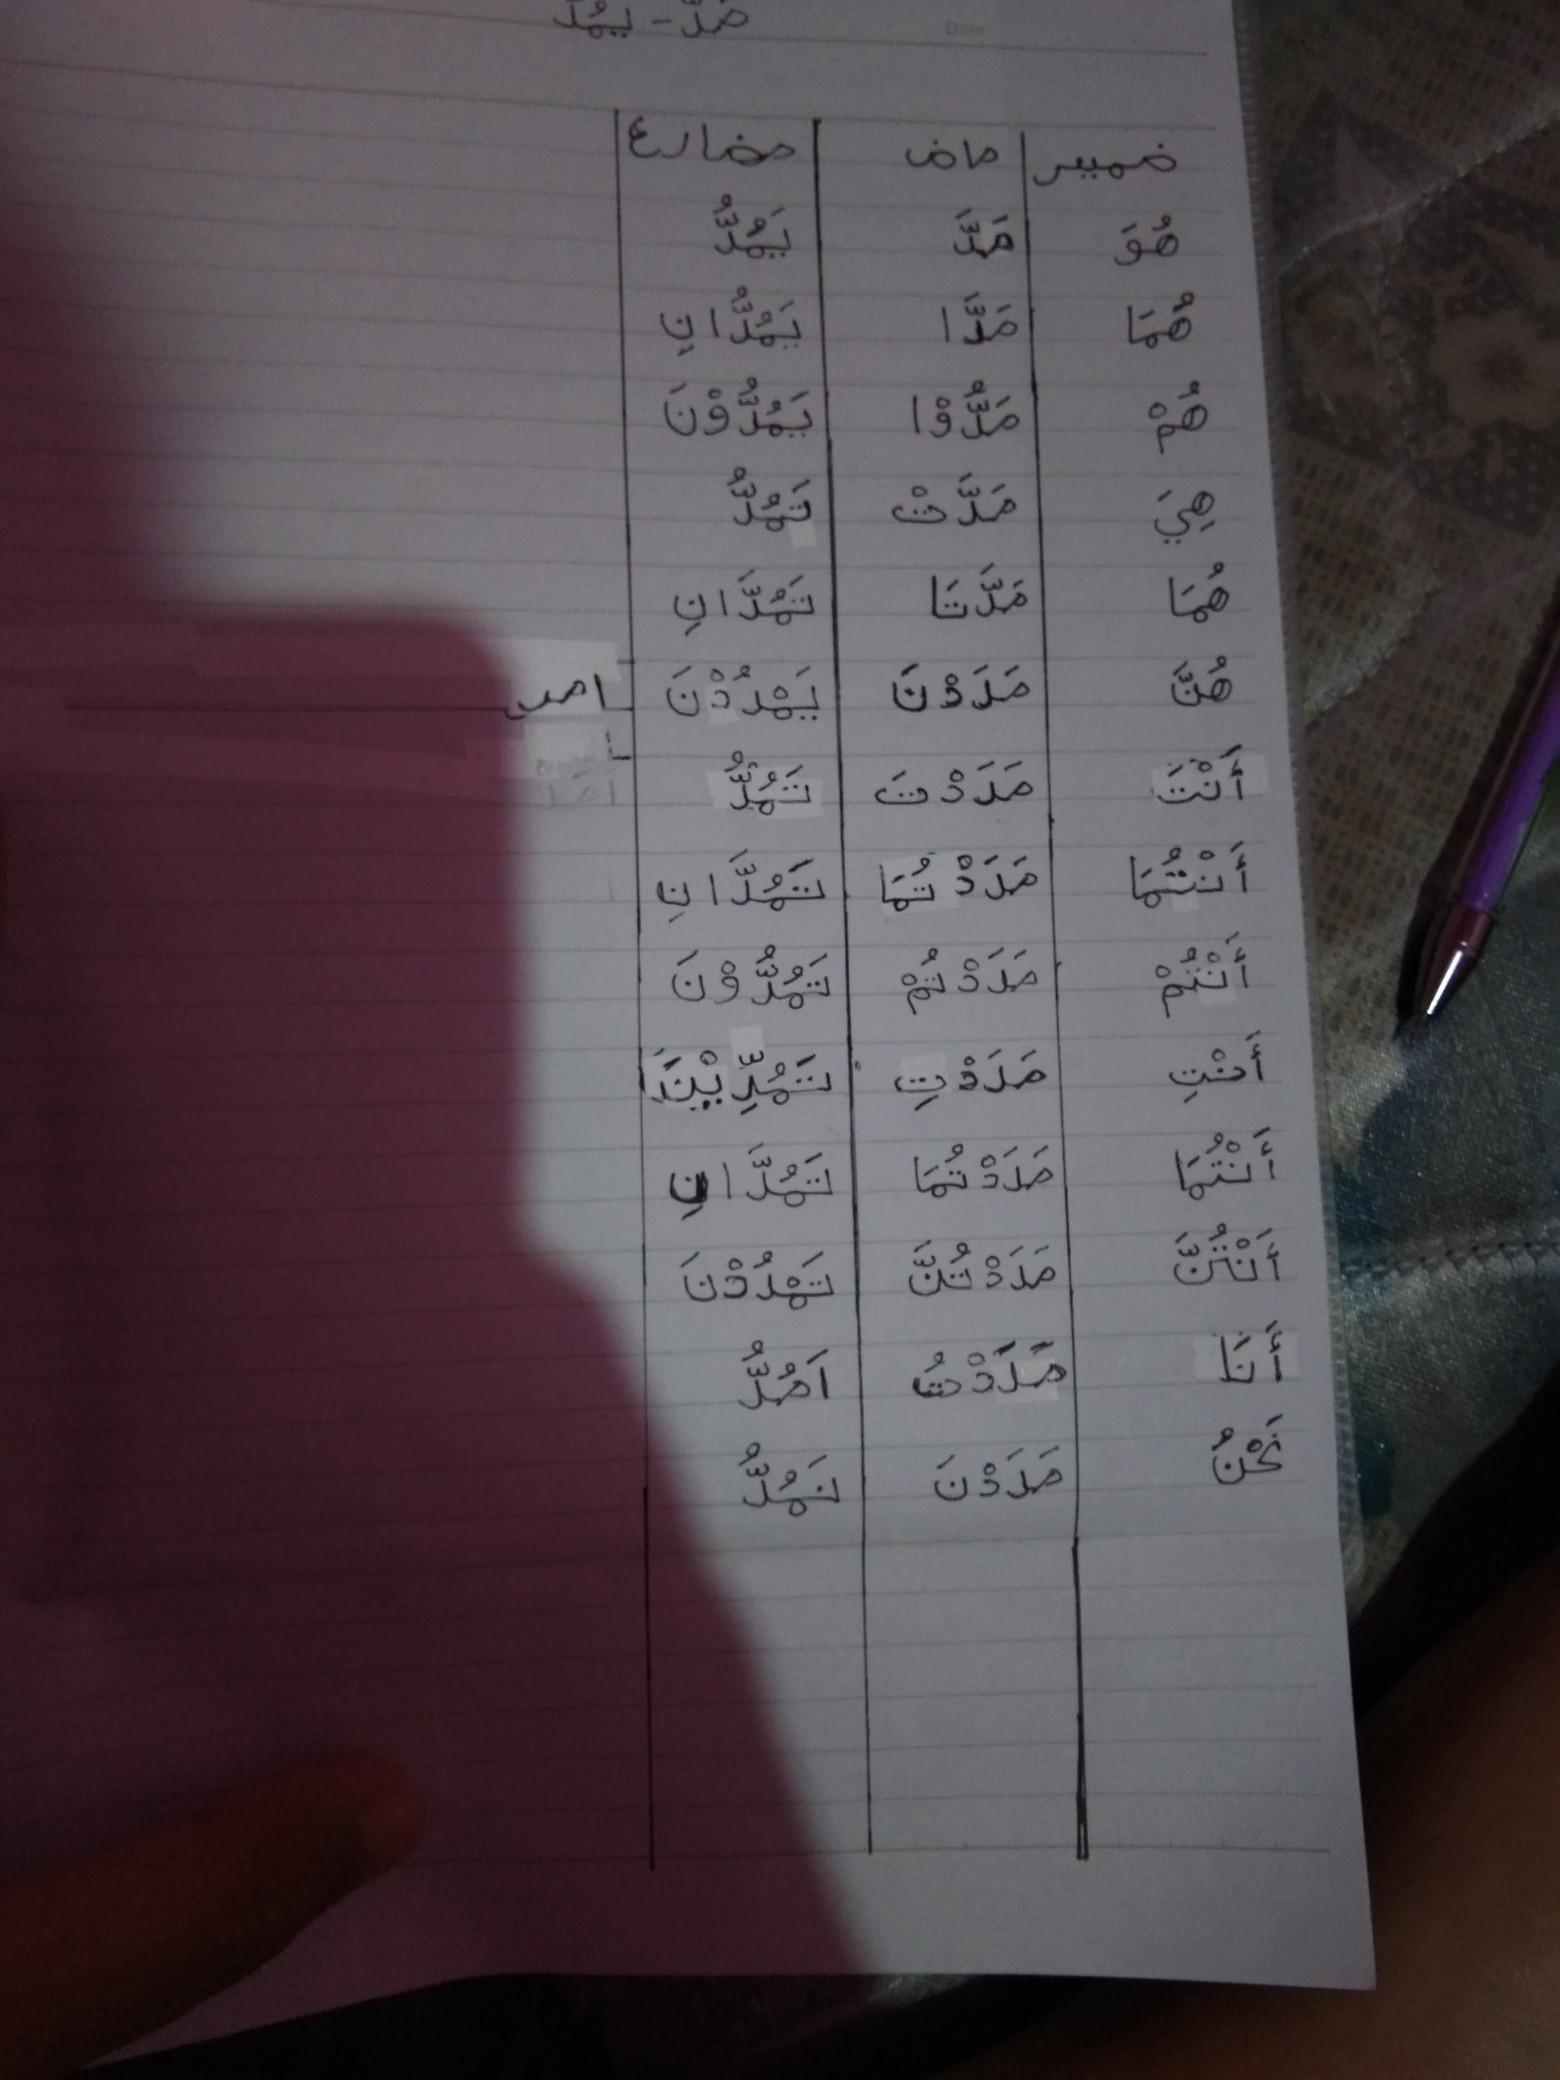 مَدَّ - يَمُدُّ
ضمير ماض مضارع
هُوَ مَدَّ يَمُدُّ
هُمَا مَدَّا يَمُدَّانِ
هُمْ مَدُّوْا يَمُدُّوْنَ
هِيَ مَدَّتْ تَمُدُّ
هُمَا مَدَّتَا تَمُدَّانِ
هُنَّ مَدَدْنَ يَمْدُدْنَ امد
أَنْتَ مَدَدْتَ تَمُدُّ
أَنْتُمَا مَدَدْتُمَا تَمُدَّانِ
أَنْتُمْ مَدَدْتُمْ تَمُدُّوْنَ
أَنْتِ مَدَدْتِ تَمُدِّيْنَ
أَنْتُمَا مَدَدْتُمَا تَمُدَّانِ
أَنْتُنَّ مَدَدْتُنَّ تَمْدُدْنَ
أَنَا مَدَدْتُ اَمُدُّ
نَحْنُ مَدَدْنَ نَمُدُّ